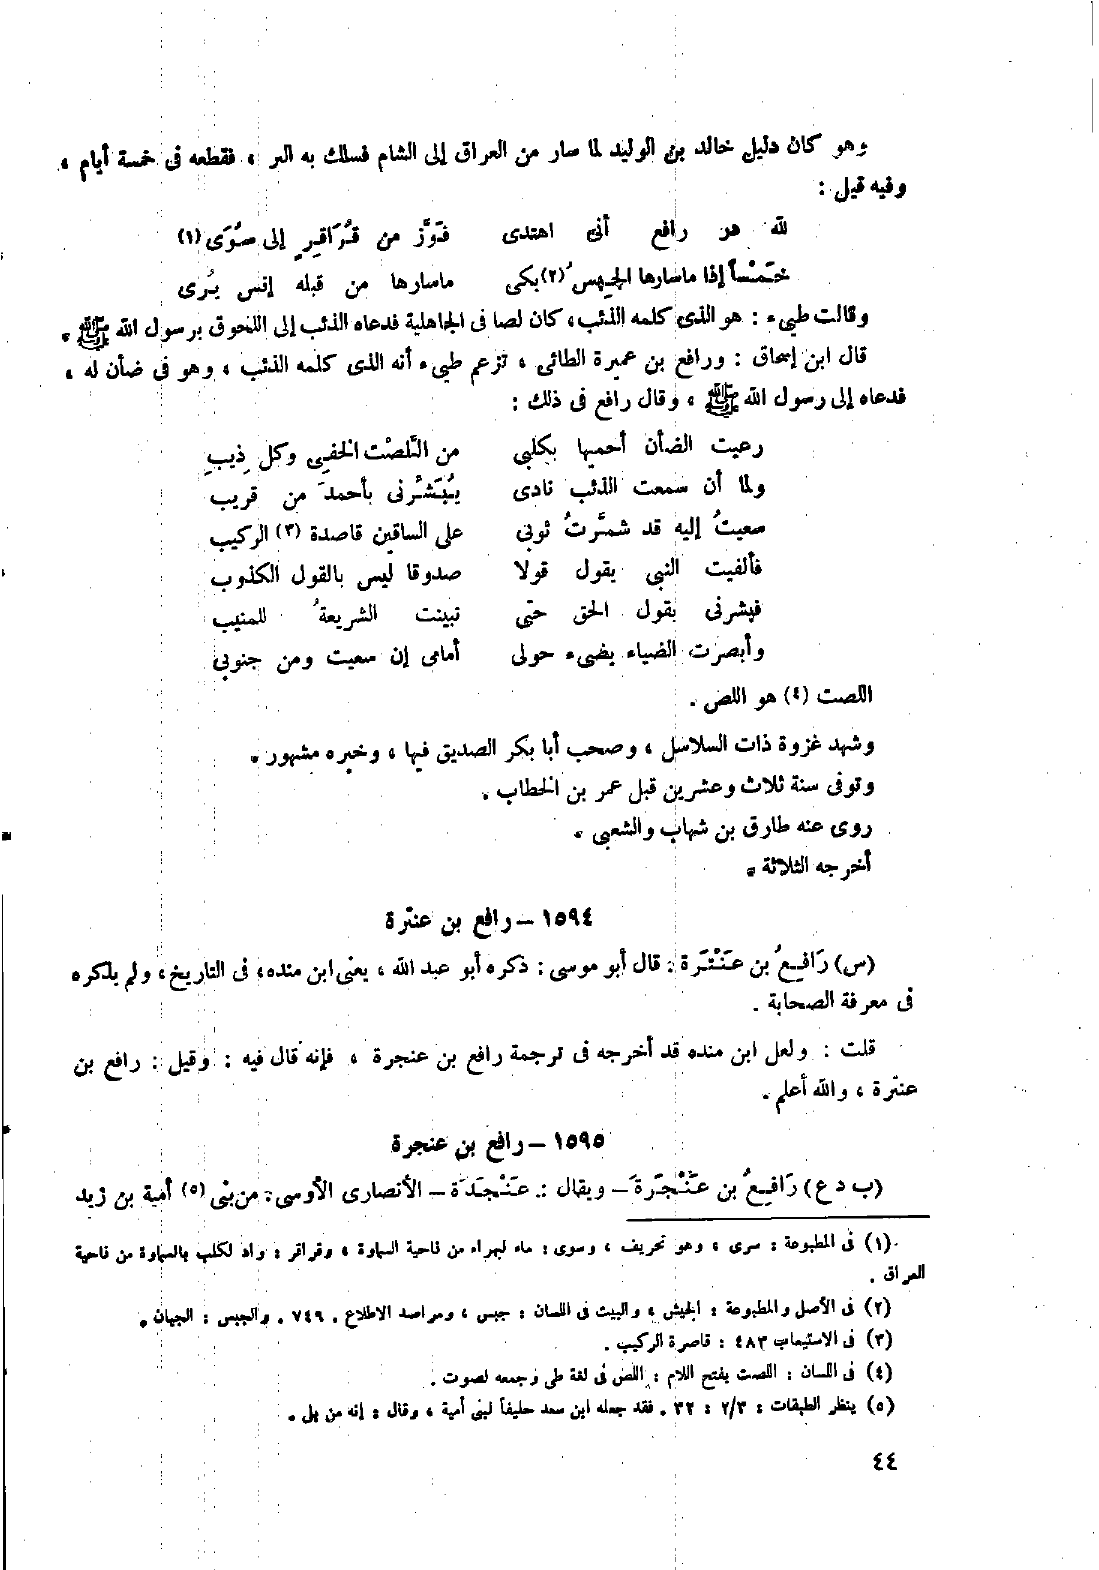 وهو كان دليل خالد بن الوليد لما سار من العراق إلى الشام فسلك به البر ، فقطعه فى خمسة أيام ،
وفيه قيل :
لله هو رافع أنى اهتدى فَوَّز من قُرَاقِرٍ إلى سُوَى (١)
خَمْساً إذا ماسارها الجِبسُ (٢) بكى ماسارها من قبله إنس يُرى
وقالت طيىء : هو الذى كلمه الذئب، كان لصا فى الجاهلية فدعاه الذئب إلى اللحوق برسول الله ﷺ .
قال ابن إسحاق : ورافع بن عميرة الطائى ، تزعم طيىء أنه الذى كلمه الذئب ، وهو فى ضأن له ،
فدعاه إلى رسول الله ﷺ ، وقال رافع فى ذلك :
رعيت الضأن أحميها بكلبى من اللَّصْت الخفِى وكل ذِيبِ
ولما أن سمعت الذئب نادى يُبَشِّرنى بأحمدَ من قريب
سعيتُ إليه قد شمَّرتُ ثوبى على الساقين قاصدة (٣) الركيب
فألفيت النبى يقول قولا صدوقا ليس بالقول الكذوب
فبشرنى بقول الحق حتى تبينت الشريعةُ للمنيب
وأبصرت الضياء يضىء حولى أمامى إن سعيت ومن جنوبى
اللصت (٤) هو اللص .
وشهد غزوة ذات السلاسل ، وصحب أبا بكر الصديق فيها ، وخبره مشهور .
وتوفى سنة ثلاث وعشرين قبل عمر بن الخطاب .
روى عنه طارق بن شهاب والشعبى .
أخرجه الثلاثة .
١٥٩٤ – رافع بن عنترة
(س) رَافِعُ بن عَنْتَرة : قال أبو موسى : ذكره أبو عبد الله ، يعنى ابن منده، فى التاريخ، ولم يذكره
فى معرفة الصحابة .
قلت : ولعل ابن منده قد أخرجه فى ترجمة رافع بن عنجرة ، فإنه قال فيه : وقيل : رافع بن
عنترة ، والله أعلم .
١٥٩٥ – رافع بن عنجرة
(ب د ع) رَافِعُ بن عَنْجَرَةَ – ويقال : عَنْجَدَة – الأنصارى الأوسى : من بنى (٥) أمية بن زيد
(١) فى المطبوعة : سرى ، وهو تحريف ، وسوى : ماء لبهراء من ناحية السماوة ، وقراقر : واد لكلب بالسماوة من ناحية
العراق .
(٢) فى الأصل والمطبوعة : الجيش ، والبيت فى اللسان : جبس ، ومراصد الاطلاع . ٧٤٩ . والجبس : الجبان .
(٣) فى الاستيعاب ٤٨٣ : قاصرة الركيب .
(٤) فى اللسان : اللصت بفتح اللام : اللص فى لغة طى وجمعه لصوت .
(٥) ينظر الطبقات : ٢/٣ : ٣٢ . فقد جعله ابن سعد حليفاً لبنى أمية ، وقال : إنه من بلى .
٤٤